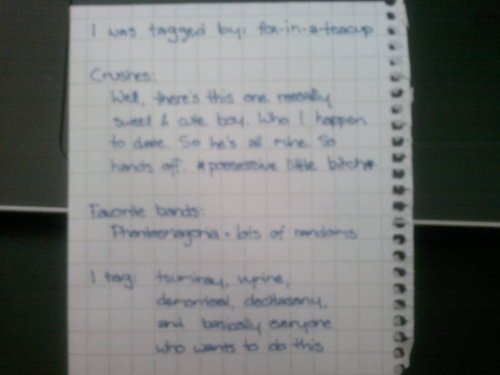 I was tagged by: fox-in-a-teacup
Crushes:
Well, there's this one reeeally
sweet & cute boy. Who I happen
to date. So he's all mine. So
hands off. *possessive little bitch*
Favorite bands:
Phantasmagoria + lots of randoms
I tag:
and basically everyone
who wants to do this